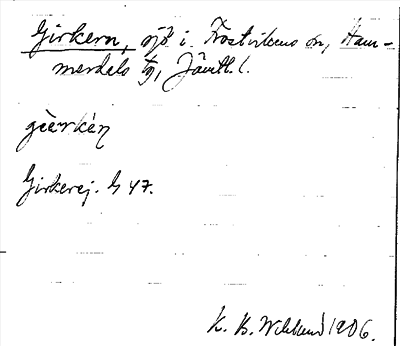 Girkern, sjö i Frostvikens sn, Ham-
merdals tg, Jämtl. l.
gèerkén
Girkerej. G 47.
K. B. Wiklund 1906.